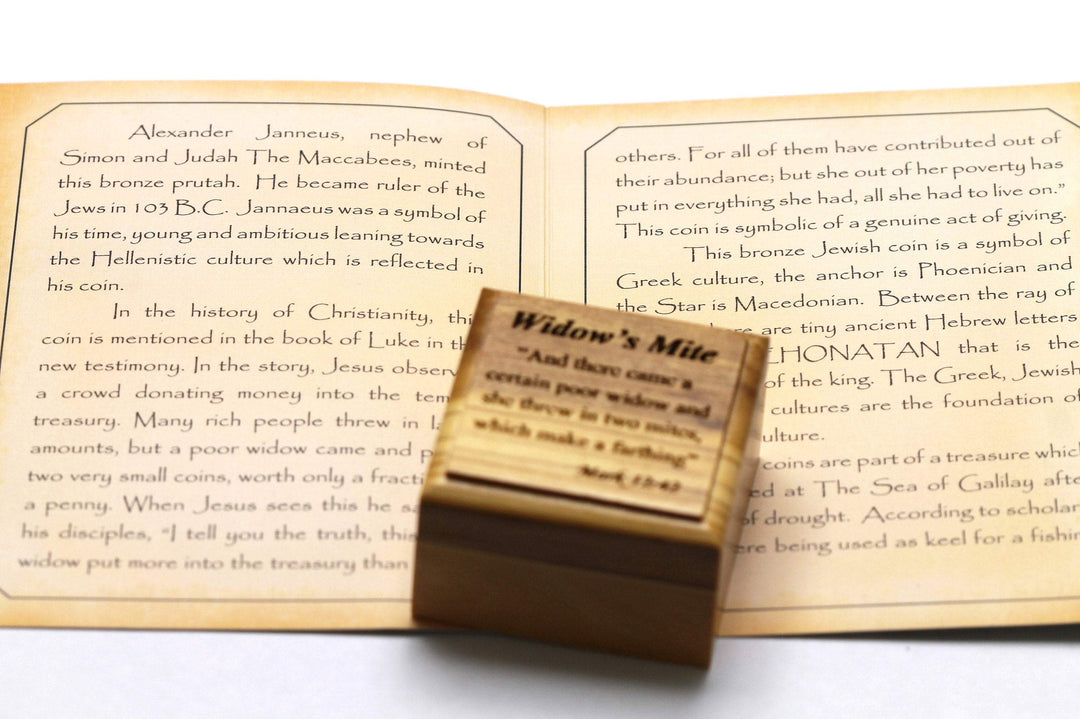 Alexander Janneus, nephew of
Simon and Judah The Maccabees, minted
this bronze prutah. He became ruler of the
Jews in 103 B.C. Jannaeus was a symbol of
his time, young and ambitious leaning towards
the Hellenistic culture which is reflected in
his coin.
In the history of Christianity,
coin is mentioned in the book of Luke in
new testimony. In the story, Jesus
a crowd donating money into the
treasury. Many rich people threw in
amounts, but a poor widow came and
two very small coins, worth only a
a penny. When Jesus sees this he
his disciples, “I tell you the truth,
widow put more into the treasury than
others. For all of them have contributed out of
their abundance; but she out of her poverty has
put in everything she had, all she had to live on.”
This coin is symbolic of a genuine act of giving.
This bronze Jewish coin is a symbol of
Greek culture, the anchor is Phoenician and
the Star is Macedonian. Between the ray of
are tiny ancient Hebrew letters
that is the
of the king. The Greek, Jewish
cultures are the foundation
coins are part of a treasure
at The Sea of Galilay
of drought. According to
being used as keel for a
Widow's Mite
"And there came a
certain poor widow and
she threw in two mites,
which make a farthing"
Mark 12:42